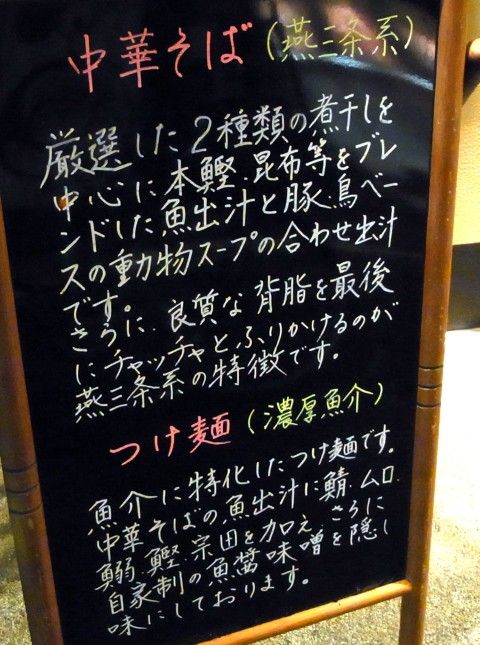 中華そば(燕三条系)
厳選した2種類の煮干しを
中心に本鰹、昆布等をブレ
ンドした魚出汁と豚、鳥ベー
スの動物スープの合わせ出汁
です。
さらに、良質な背脂を最後
にチャッチャとふりかけるのが
燕三条系の特徴です。
つけ麺(濃厚魚介)
魚介に特化したつけ麺です。
中華そばの魚出汁に鯖、ムロ、
鰯、鰹、宗田を加え、さらに
自家制の魚醬、味噌を隠し
味にしております。